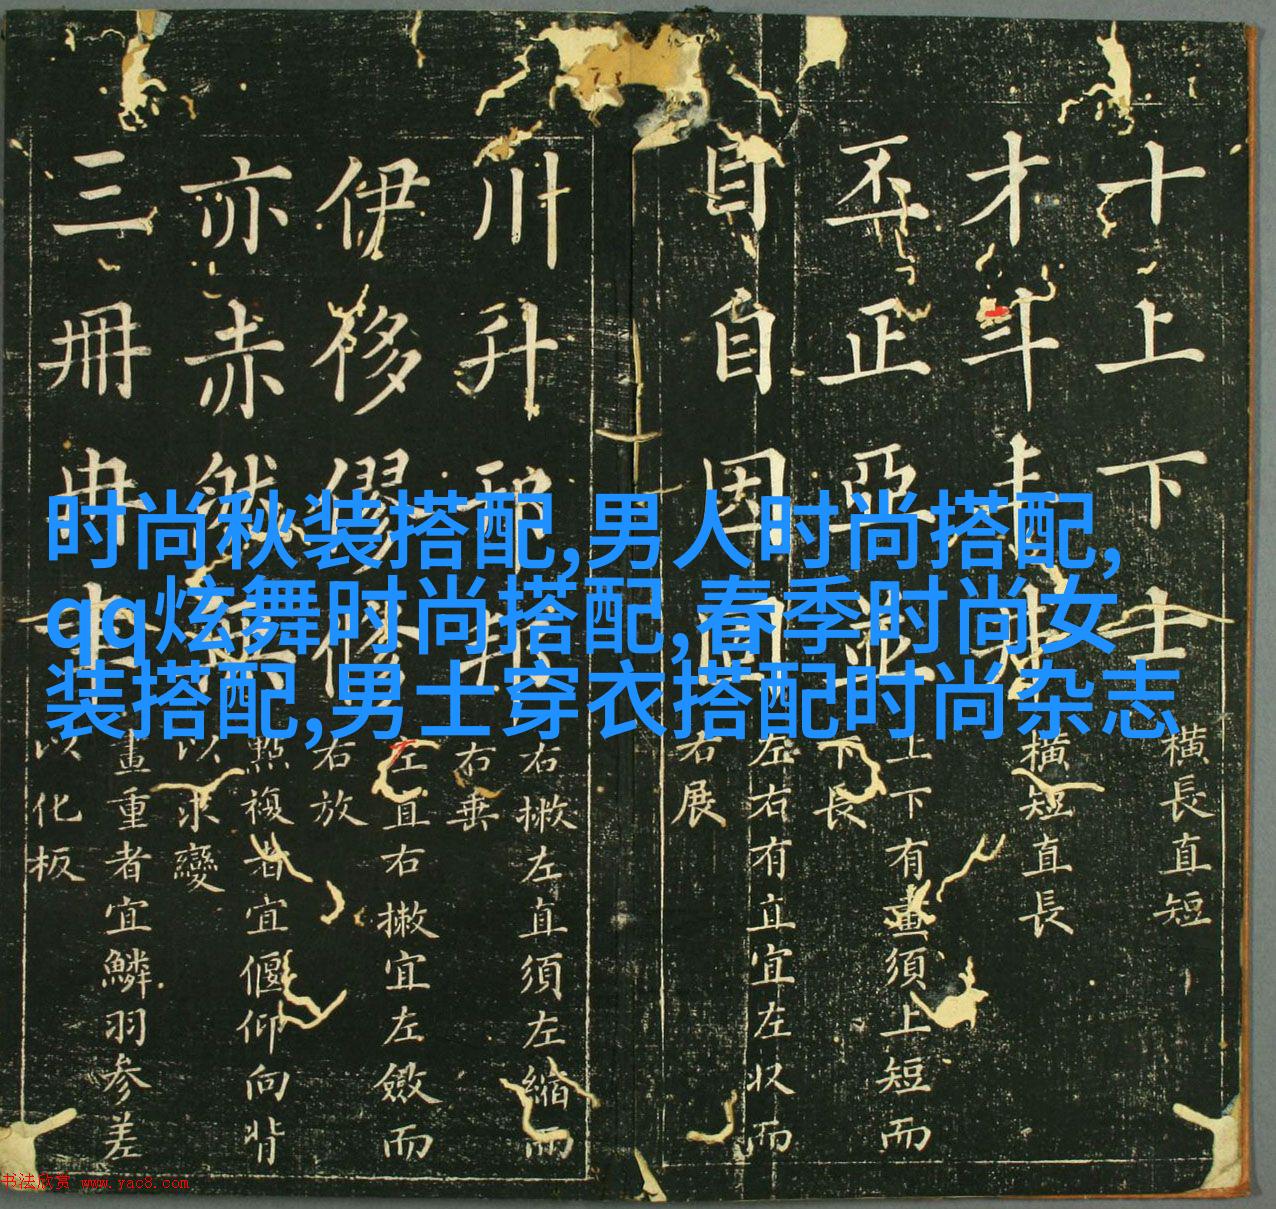 时尚秋装搭配,男人时尚搭配,
qq炫舞时尚搭配,春季时尚女
装搭配,男士穿衣搭配时尚杂志
十上下士
橫長直短
才斗
橫短直長
丕正亞並
上下有畫須上短而
下長
目自因固
左右有直宜左收而
右展
川升邪邦
右撇左直須左縮而
右垂
伊侈修
左直右撇宜左斂而
右放
亦赤然無
點複者宜偃仰向背
以求變
三冊冉
畫重者宜鱗羽參差
以化板
书法欣赏 www.yac8.com